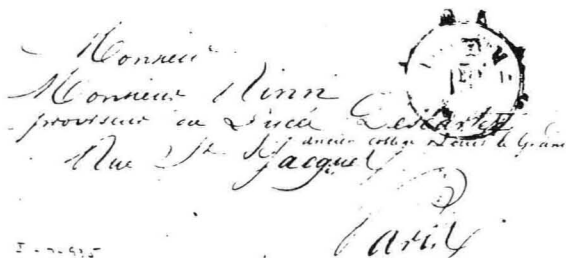 Monsieur
Monsieur Rinn
proviseur au Lycée Descartes
ancien collège Louis le Grand
Rue St Jacques
Paris